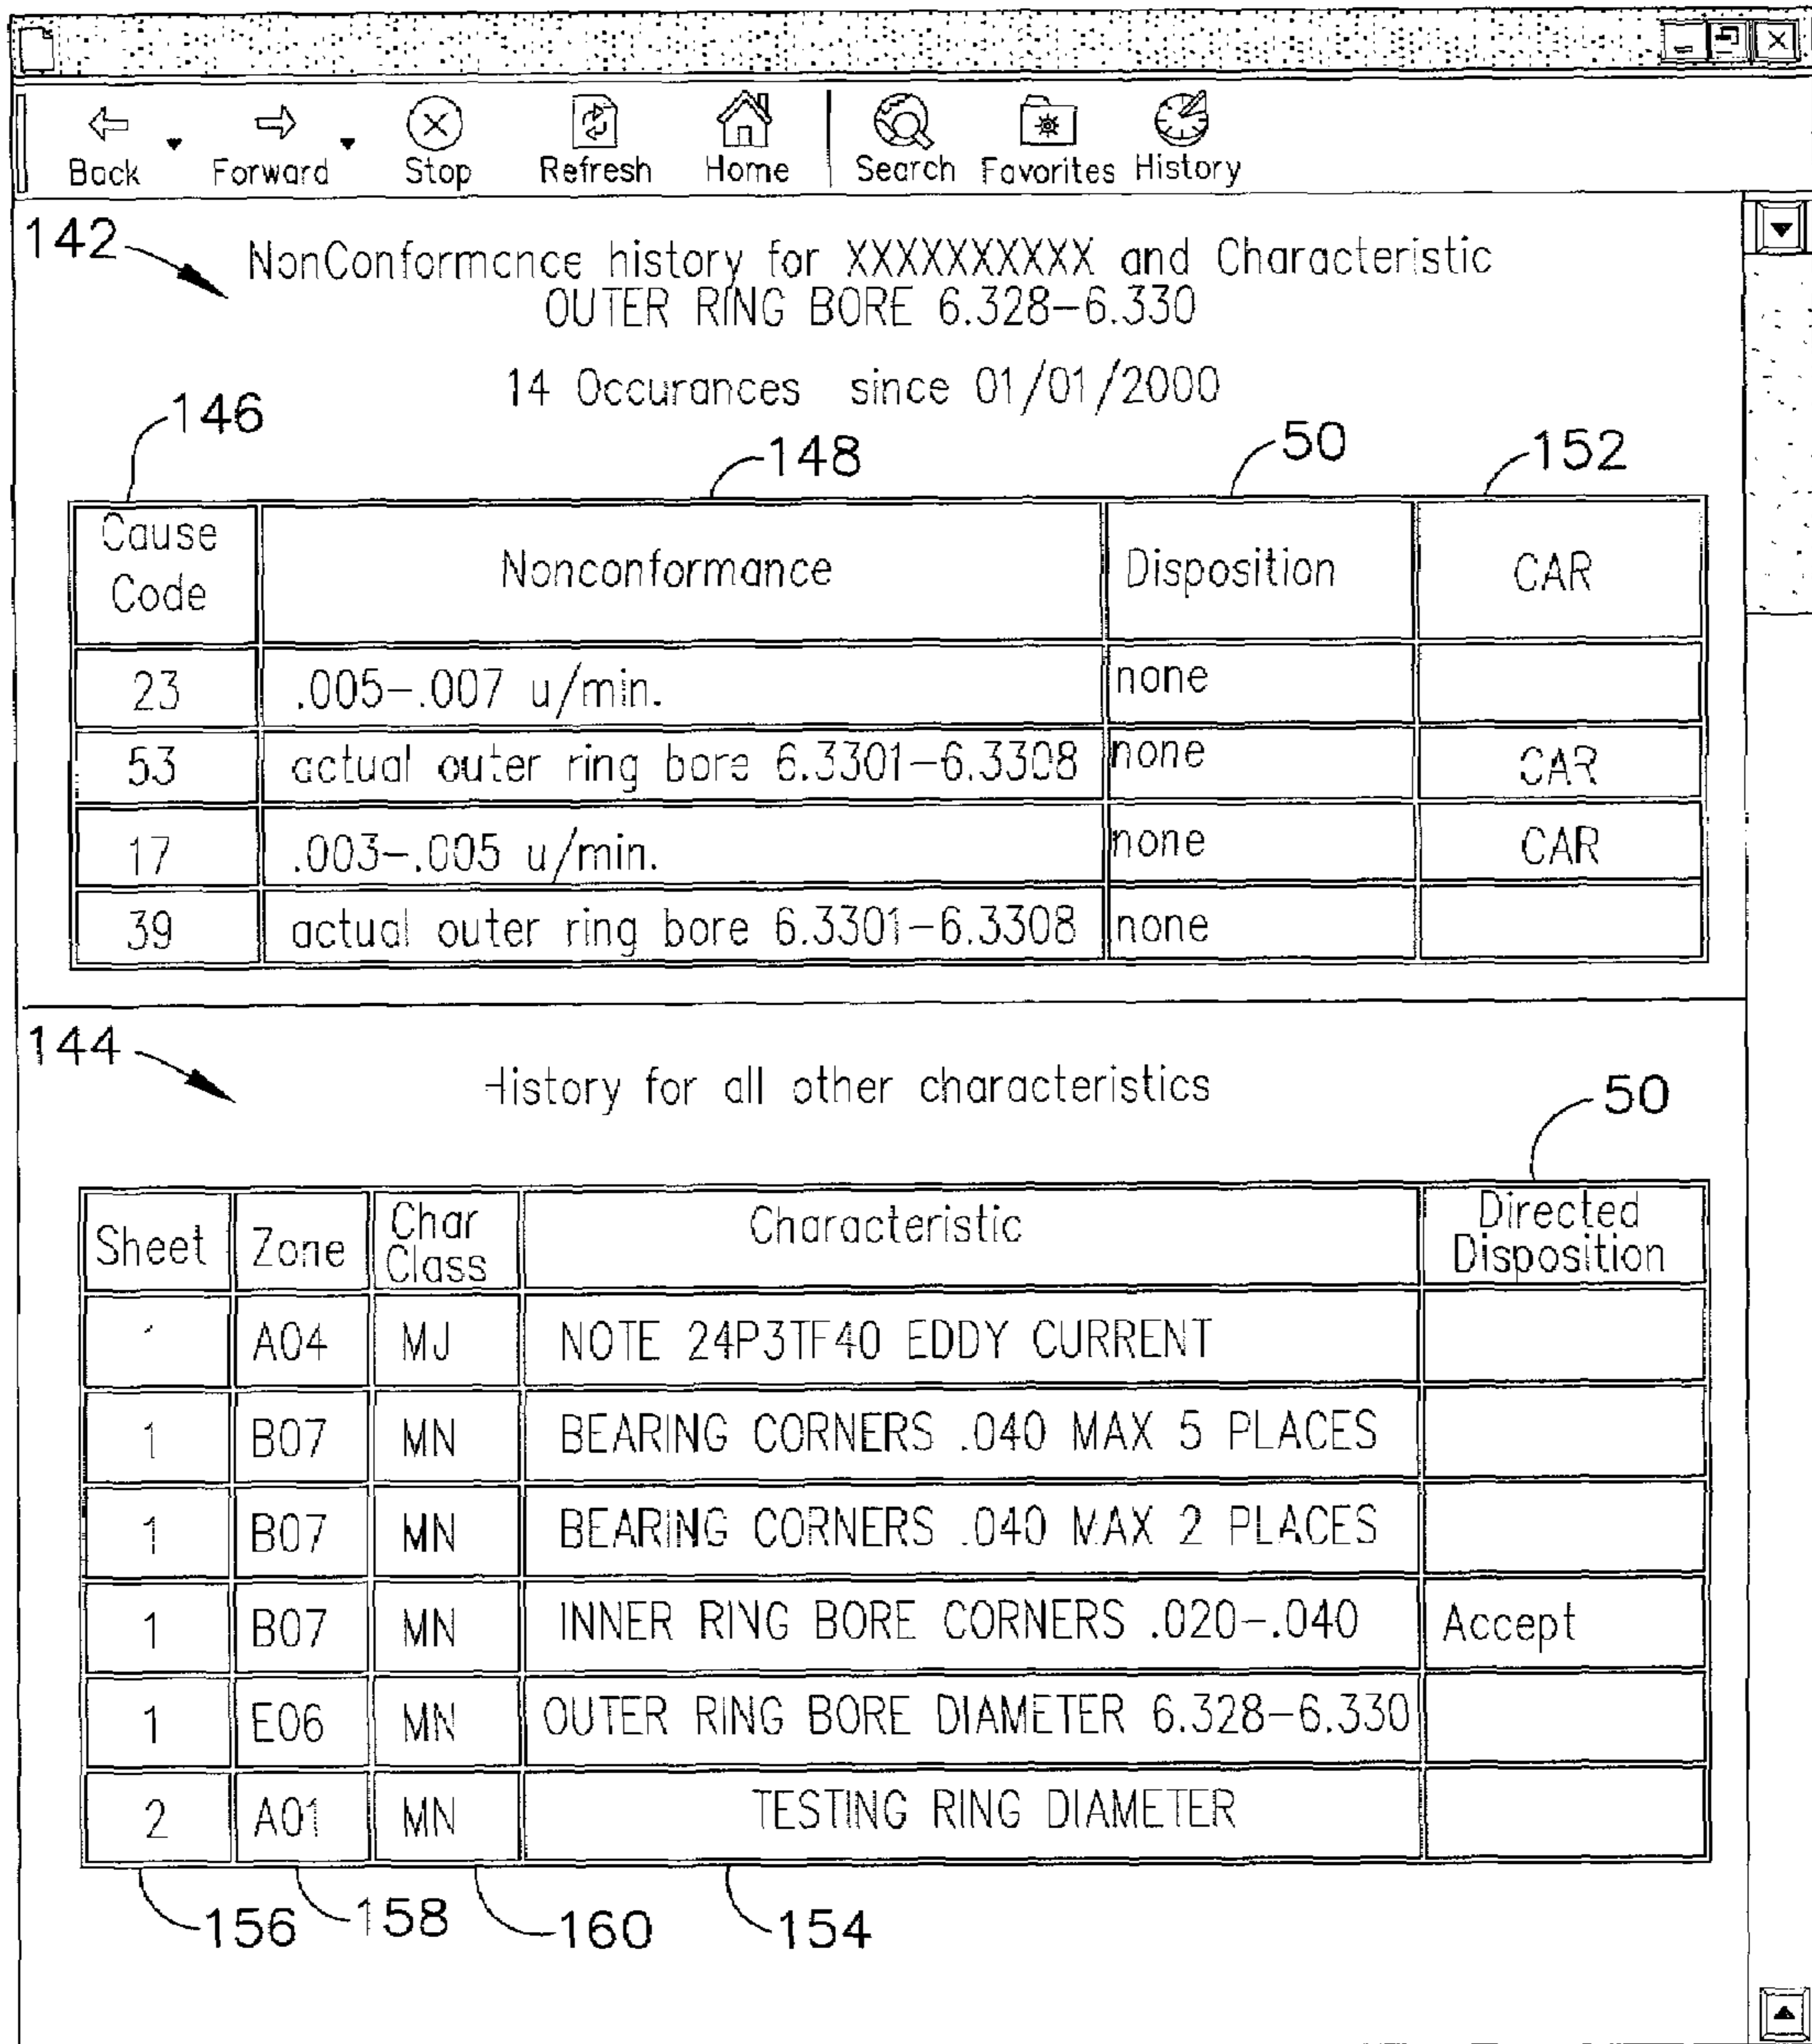 Back Forward Stop Refresh Home Search Favorites History
142
NonConformance history for XXXXXXXXXX and Characteristic
OUTER RING BORE 6.328-6.330
14 Occurances since 01/01/2000
146 148 50 152
Cause Code Nonconformance Disposition CAR
23 .005-.007 u/min. none
53 actual outer ring bore 6.3301-6.3308 none CAR
17 .003-.005 u/min. none CAR
39 actual outer ring bore 6.3301-6.3308 none
144
History for all other characteristics
50
Sheet Zone Char Class Characteristic Directed Disposition
1 A04 MJ NOTE 24P3TF40 EDDY CURRENT
1 B07 MN BEARING CORNERS .040 MAX 5 PLACES
1 B07 MN BEARING CORNERS .040 MAX 2 PLACES
1 B07 MN INNER RING BORE CORNERS .020-.040 Accept
1 E06 MN OUTER RING BORE DIAMETER 6.328-6.330
2 A01 MN TESTING RING DIAMETER
156 158 160 154